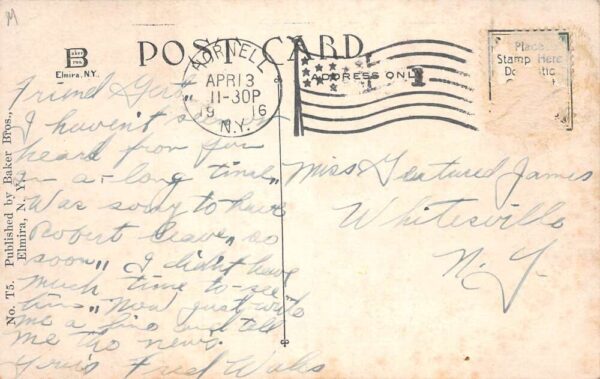 M
Baker
Bros.
B
Elmira, N.Y.
POST CARD
HORNELL
APR 13
11-30P
19 16
N.Y.
ADDRESS ONLY
Place
Stamp Here
Domestic
No. T5. Published by Baker Bros.,
Elmira, N. Y.
Friend Gert"
I haven't
heard from you
in a-long time"
Was sorry to have
Robert leave" so
soon" I didn't have
much time to see
him" Now just write
me a line and tell
me the news.
Yours Fred Wales
Miss Geatured James
Whitesville
N. Y.